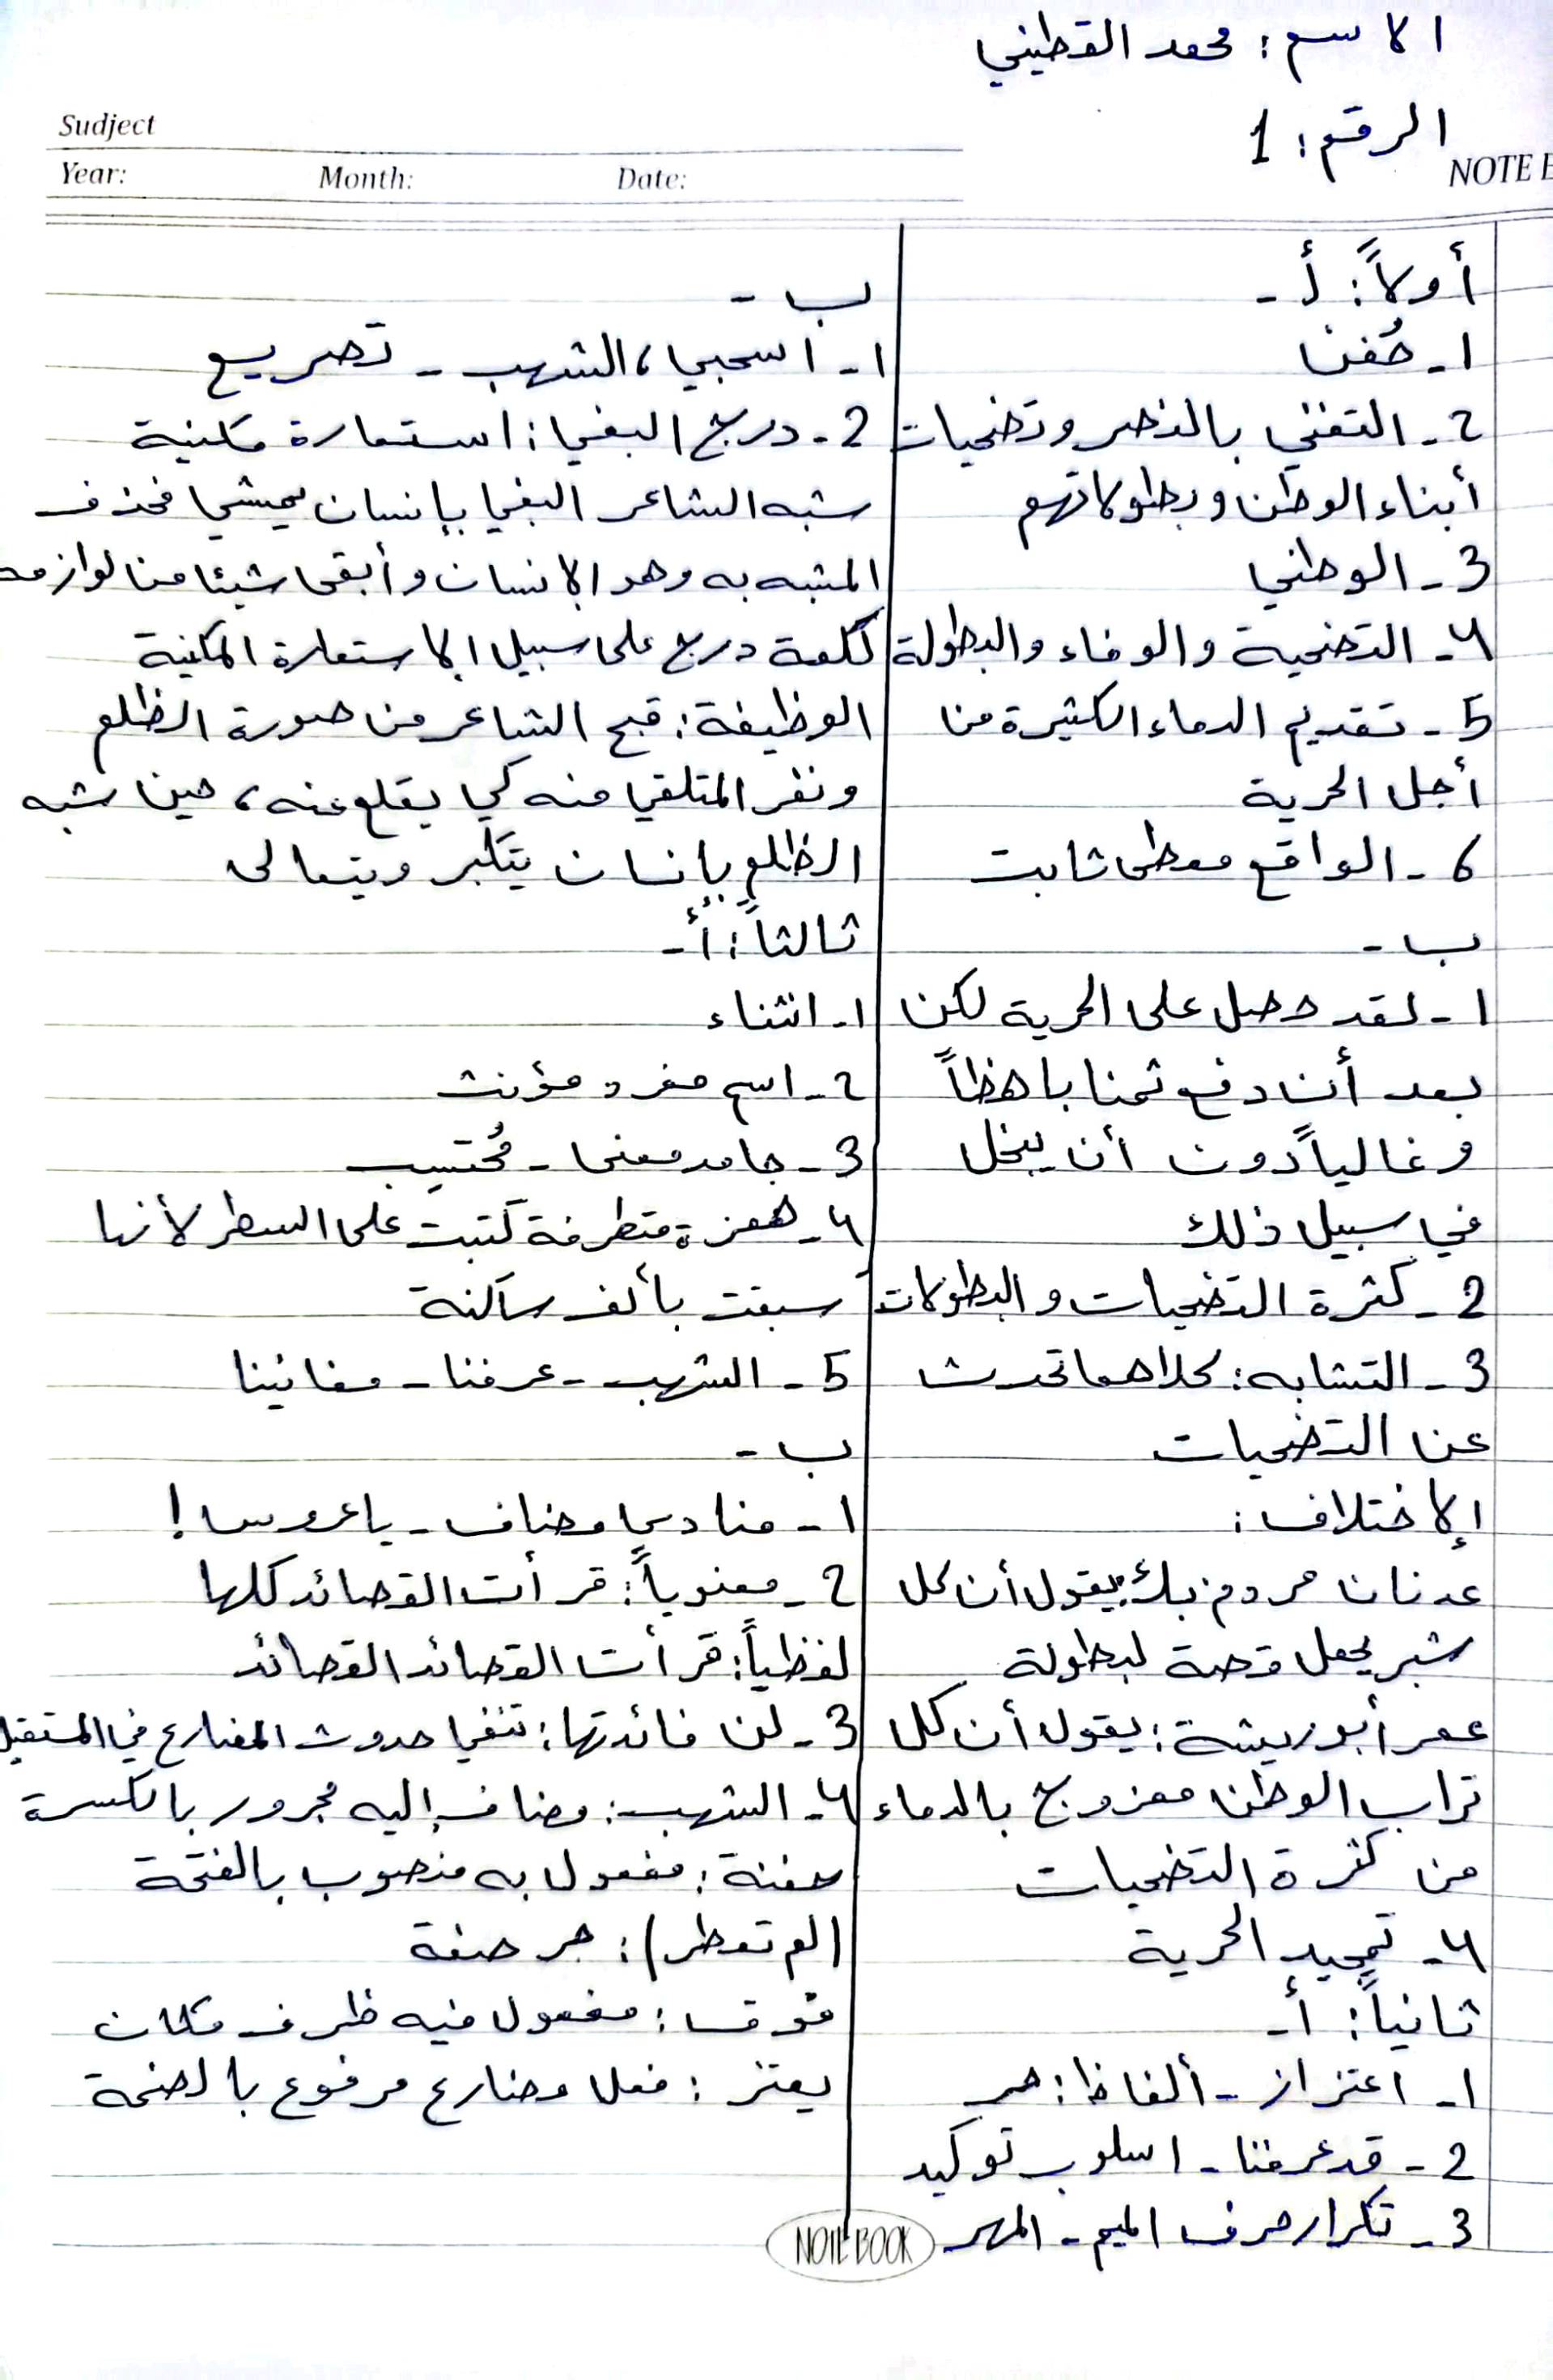 الاسم: محمد القطيني
الرقم: 1
Sudject
Year: Month: Date:
NOTE B
أولاً: أ -
1- خُضنا
2- التغني بالنصر وتضحيات
أبناء الوطن وبطولاتهم
3- الوطني
4- التضحية والوفاء والبطولة
5- تقديم الدماء الكثيرة من
أجل الحرية
6- الواقع معطى ثابت
ب -
1- لقد حصل على الحرية لكن
بعد أن دفع ثمنا باهظاً
وغالياً دون أن يبخل
في سبيل ذلك
2- كثرة التضحيات والبطولات
3- التشابه: كلاهما تحدث
عن التضحيات
الإختلاف:
عدنان مردم بك: يقول أن كل
شبر يحمل قصة لبطولة
عمر أبو ريشة: يقول أن كل
تراب الوطن ممزوج بالدماء
من كثرة التضحيات
4- تمجيد الحرية
ثانياً: أ-
1- اعتزاز - ألفاظ: حر
2- قد عرفنا - اسلوب توكيد
3- تكرار حرف الميم - المهر
ب -
1- اسحبي، الشهب - تصريع
2- درج البغي: استعارة مكنية
شبه الشاعر البغي بإنسان يمشي فحذف
المشبه به وهو الإنسان وأبقى شيئا من لوازمه
كلمة درج على سبيل الاستعارة المكنية
الوظيفة: قبح الشاعر من صورة الظلم
ونفر المتلقي منه كي يقلع عنه، حين شبه
الظلم بإنسان يتكبر ويتعالى
ثالثاً: أ-
1- انثناء
2- اسم مفرد مؤنث
3- جامد معنى - مُحتسِب
4- همزة متطرفة كتبت على السطر لأنها
سبقت بألف ساكنة
5- الشهب - عرفنا - مغانينا
ب -
1- منادى مضاف - يا عروس!
2- معنوياً: قرأت القصائد كلها
لفظياً: قرأت القصائد القصائد
3- لن فائدتها: تنفي حدوث المضارع في المستقبل
4- الشهب: مضاف إليه مجرور بالكسرة
حفنة: مفعول به منصوب بالفتحة
(لم تعطر): جر صفة
فوق: مفعول فيه ظرف مكان
يعتز: فعل مضارع مرفوع بالضمة
NOTEBOOK